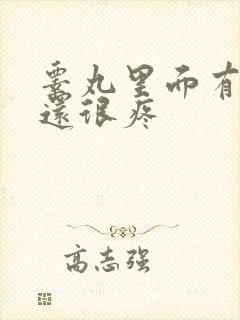 睾丸里面有
还很疼
高志强